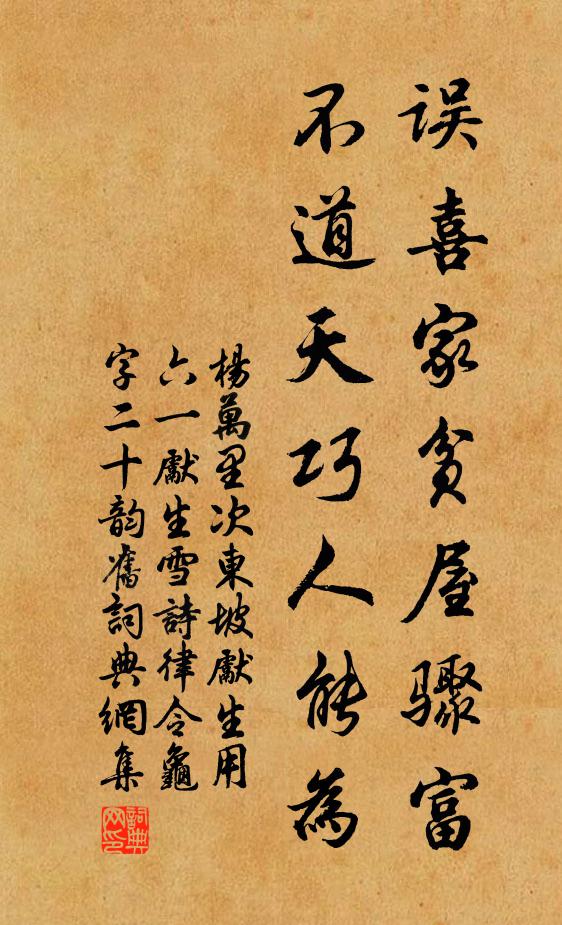 误喜家贫屋骤富
不道天巧人能為
楊萬里次東坡獻生用
六一獻生雪詩律令龜
字二十韵舊詞典網集
詞典
网印